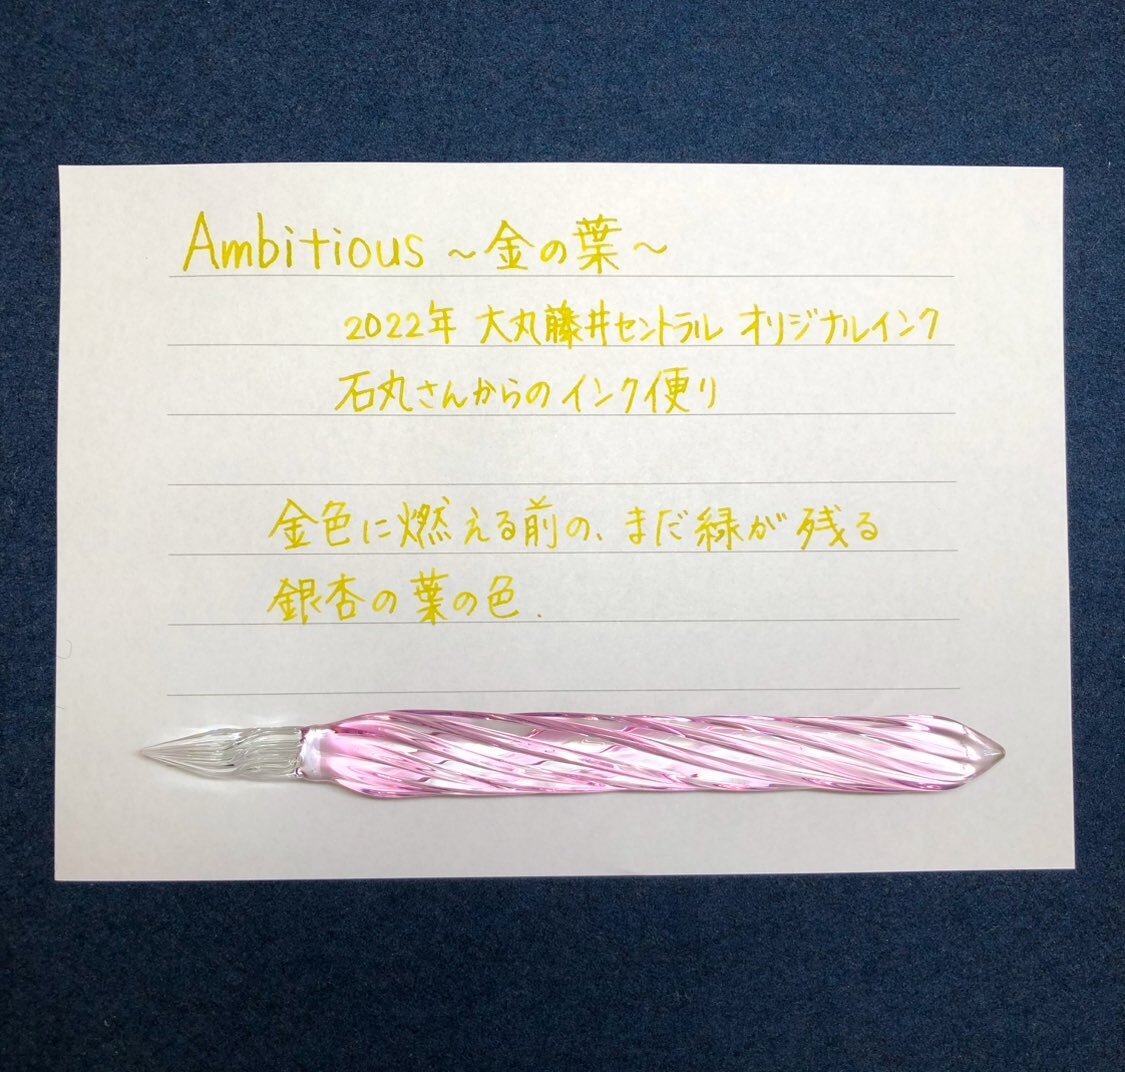 Ambitious ~金の葉~
2022年 大丸藤井セントラル オリジナルインク
石丸さんからのインク便り
金色に燃える前の、まだ緑が残る
銀杏の葉の色.